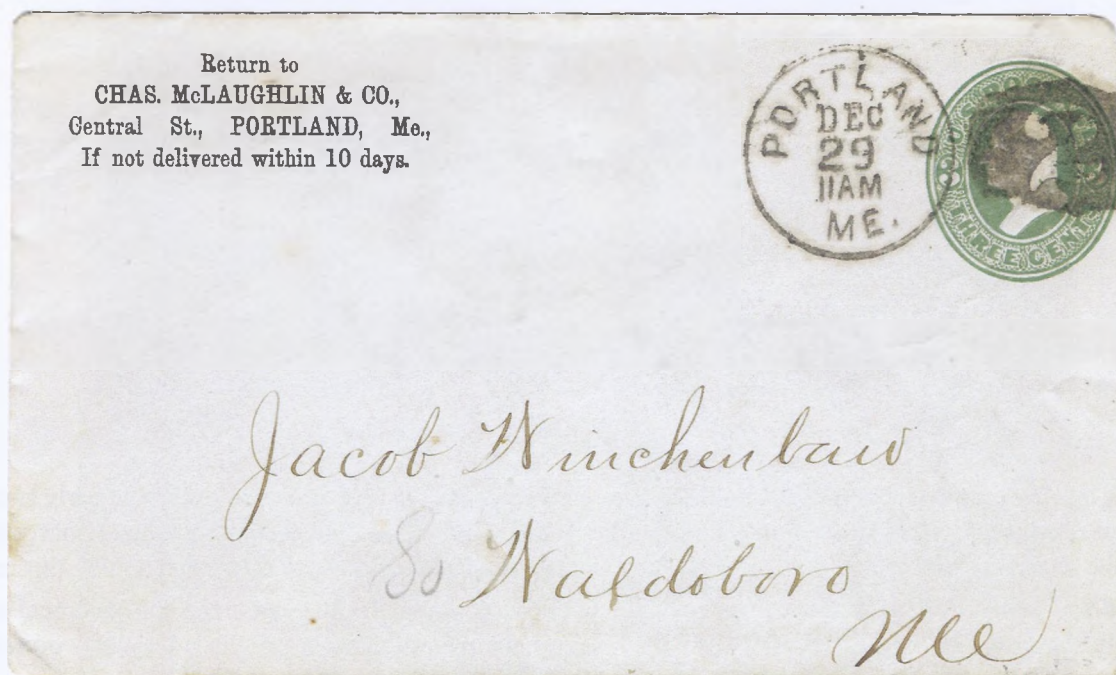 Return to
CHAS. McLAUGHLIN & CO.,
Central St., PORTLAND, Me.,
If not delivered within 10 days.
PORTLAND
DEC
29
11AM
ME.
THREE CENTS
Jacob Winchenbaw
So Waldoboro
Me